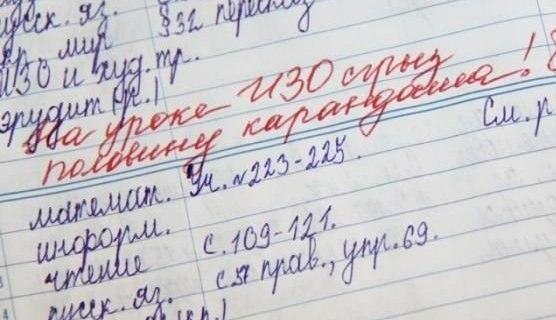 русск. яз. §32 пересказ
окр. мир
ИЗО и худ. тр.
эрудит (к.)
На уроке ИЗО сгрыз
половину карандаша!
См. р
математ. Уч. №223-225.
информ.
чтение с. 109-121.
русск. яз. с. 57 прав., упр. 69.